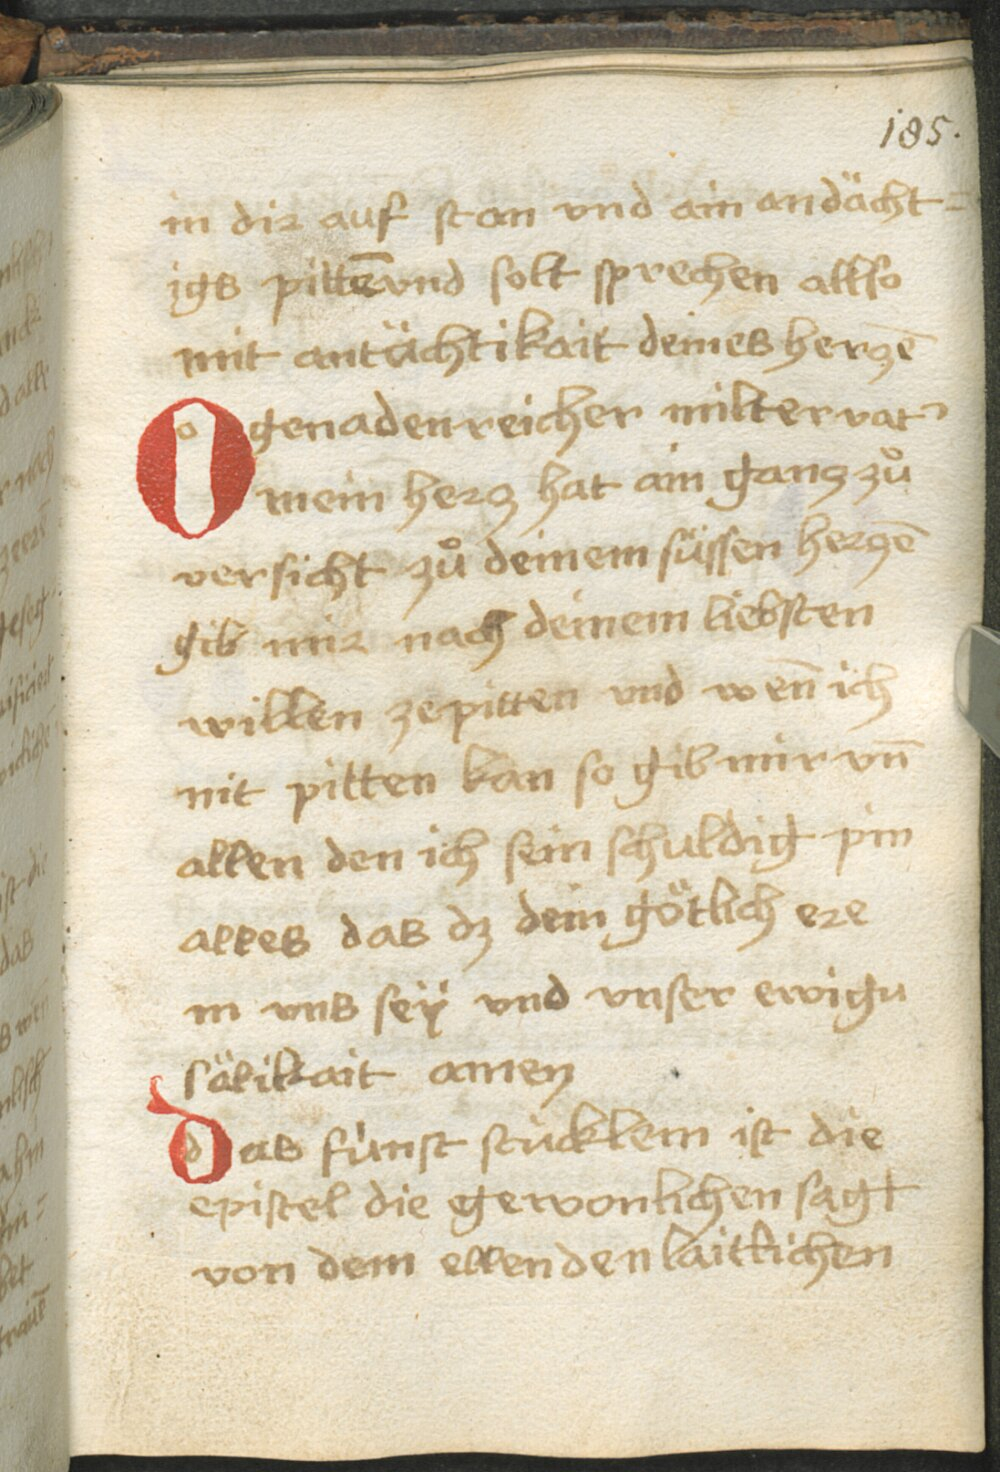 185.
in dir auf stan vnd ain andächt=
igs pittē vnd solt sprechen allso
mit antächtikait deines herczē
O genadenreicher milter vatˀ
mein hercz hat ain gancz zuͦ
versicht zuͦ deinem süssen herczē
gib mir nach deinem liebsten
willen ze pitten vnd wen̄ ich
nit pitten kan so gib mir vn̄
allen den ich sein schuldig pin
alles das dz dein götlich ere
in vns seÿ vnd vnser ewigu
sälikait amen
das fünft stucklein ist die
epistel die gewonlichen sagt
von dem ellenden laitlichen